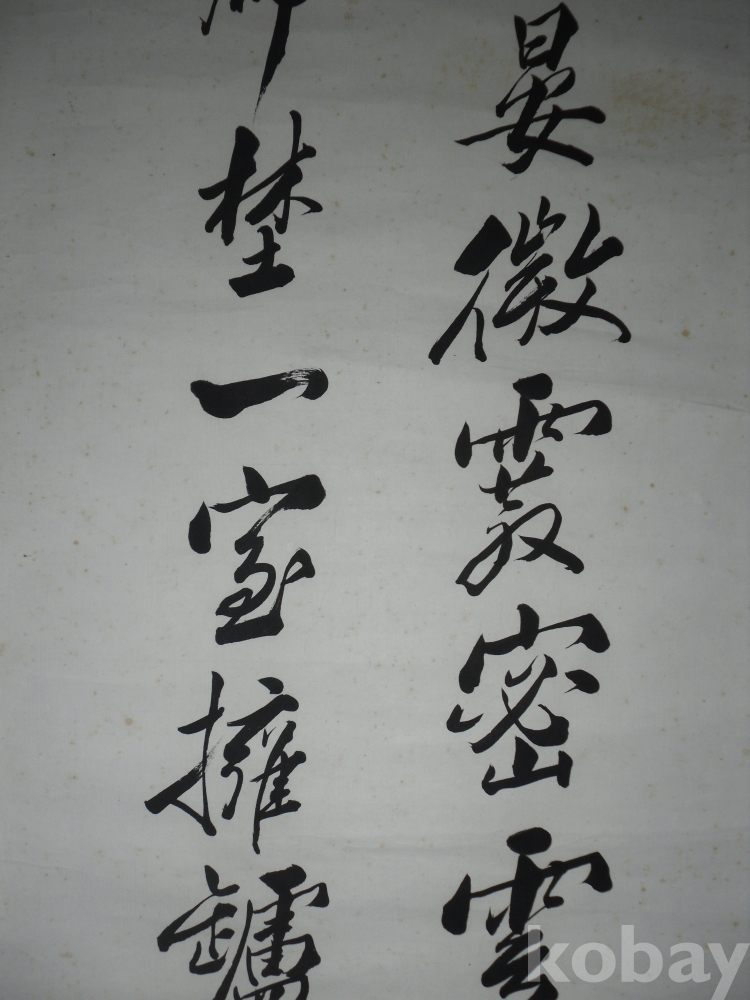 晏微霰密雲
埜一室擁罏
kobay